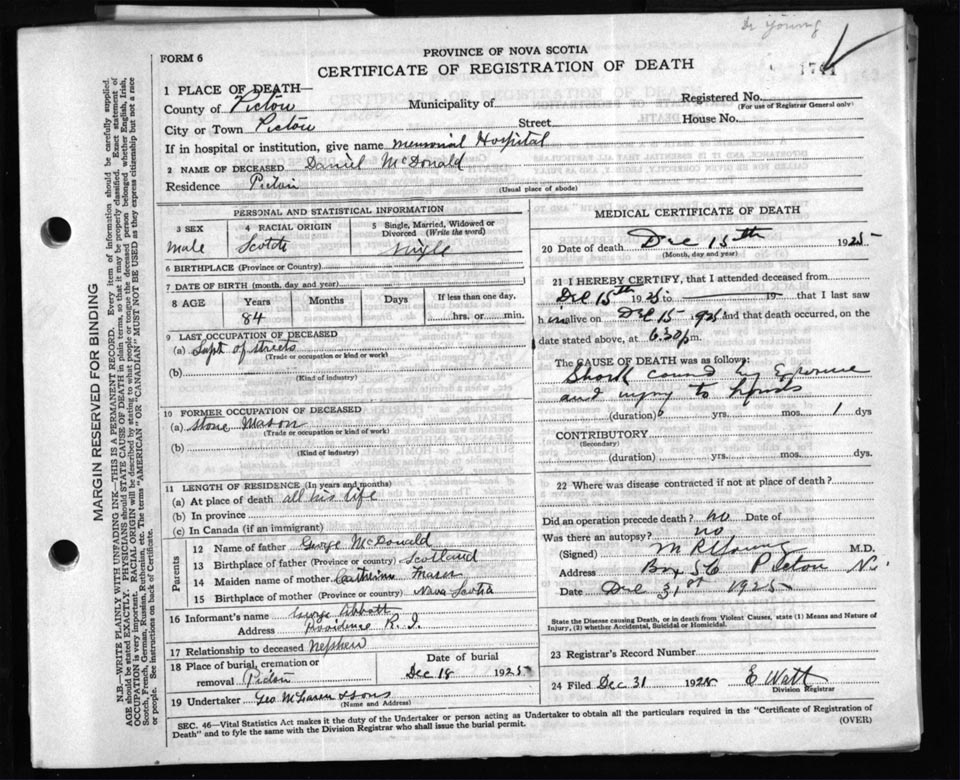 Dr Young
1741
FORM 6
PROVINCE OF NOVA SCOTIA
CERTIFICATE OF REGISTRATION OF DEATH
1 PLACE OF DEATH—
County of Pictou Municipality of Registered No.
(For use of Registrar General only)
City or Town Pictou Street House No.
If in hospital or institution, give name Memorial Hospital
2 NAME OF DECEASED Daniel McDonald
Residence Pictou
(Usual place of abode)
PERSONAL AND STATISTICAL INFORMATION
3 SEX 4 RACIAL ORIGIN 5 Single, Married, Widowed or Divorced (Write the word)
male Scotch Single
6 BIRTHPLACE (Province or Country)
7 DATE OF BIRTH (month, day and year)
8 AGE Years Months Days If less than one day,
84 hrs. or min.
9 LAST OCCUPATION OF DECEASED
(a) Supt of streets
(Trade or occupation or kind or work)
(b)
(Kind of industry)
10 FORMER OCCUPATION OF DECEASED
(a) Stone Mason
(Trade or occupation or kind of work)
(b)
(Kind of industry)
11 LENGTH OF RESIDENCE (In years and months)
(a) At place of death all his life
(b) In province
(c) In Canada (if an immigrant)
Parents
12 Name of father George McDonald
13 Birthplace of father (Province or country) Scotland
14 Maiden name of mother Catherine Fraser
15 Birthplace of mother (Province or country) Nova Scotia
16 Informant's name George Abbott
Address Providence R. I.
17 Relationship to deceased Nephew
18 Place of burial, cremation or removal Pictou
Date of burial
Dec 18 1925
19 Undertaker Geo McLaren & Sons
(Name and Address)
MEDICAL CERTIFICATE OF DEATH
20 Date of death Dec 15th 1925
(Month, day and year)
21 I HEREBY CERTIFY, that I attended deceased from
Dec 15th 1925 to 19 that I last saw
him alive on Dec 15 1925 and that death occurred, on the
date stated above, at 6.30 p m.
The CAUSE OF DEATH was as follows:
Shock caused by Exposure
and injury to hands
(duration) yrs. mos. 1 dys
CONTRIBUTORY
(Secondary)
(duration) yrs. mos. dys.
22 Where was disease contracted if not at place of death?
Did an operation precede death? no Date of
Was there an autopsy? no
(Signed) M R Young M.D.
Address Box 56 Pictou N.S.
Date Dec 31st 1925
State the Disease causing Death, or in death from Violent Causes, state (1) Means and Nature of
Injury, (2) whether Accidental, Suicidal or Homicidal.
23 Registrar's Record Number
24 Filed Dec 31 1925 E Watt
Division Registrar
SEC. 46—Vital Statistics Act makes it the duty of the Undertaker or person acting as Undertaker to obtain all the particulars required in the "Certificate of Registration of
Death" and to fyle the same with the Division Registrar who shall issue the burial permit.
(OVER)
MARGIN RESERVED FOR BINDING
N.B.—WRITE PLAINLY WITH UNFADING INK—THIS IS A PERMANENT RECORD. Every item of information should be carefully supplied.
AGE should be stated EXACTLY. PHYSICIANS should STATE CAUSE OF DEATH in plain terms, so that it may be properly classified. Exact statement of
OCCUPATION is very important. RACIAL ORIGIN will be described by stating to what people or tongue the deceased person belonged whether English, Irish,
Scotch, French, German, Russian, Ruthenian, etc. The terms "AMERICAN" or "CANADIAN" MUST NOT BE USED as they express citizenship but not a race
or people. See instructions on back of Certificate.